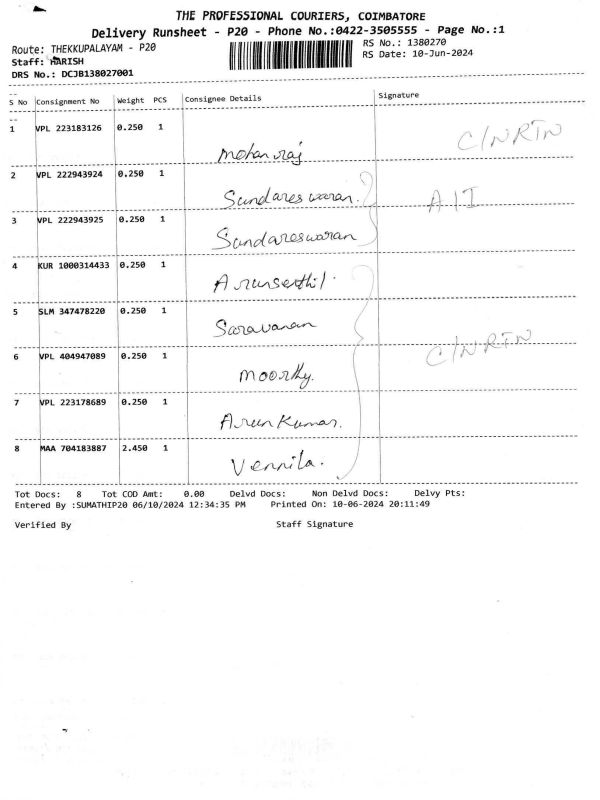 THE PROFESSIONAL COURIERS, COIMBATORE
Delivery Runsheet - P20 - Phone No.:0422-3505555 - Page No.:1
Route: THEKKUPALAYAM - P20
RS No.: 1380270
Staff: HARISH
RS Date: 10-Jun-2024
DRS No.: DCJB138027001
S No Consignment No Weight PCS Consignee Details Signature
1 VPL 223183126 0.250 1
Mohan raj C/NRTN
2 VPL 222943924 0.250 1
Sundareswaran. A/I
3 VPL 222943925 0.250 1
Sundareswaran
4 KUR 1000314433 0.250 1
Arunsenthil.
5 SLM 347478220 0.250 1
Saravanan
6 VPL 404947089 0.250 1 C/NRTN
Moorthy.
7 VPL 223178689 0.250 1
Arun Kumar.
8 MAA 704183887 2.450 1
Vennila.
Tot Docs: 8 Tot COD Amt: 0.00 Delvd Docs: Non Delvd Docs: Delvy Pts:
Entered By :SUMATHIP20 06/10/2024 12:34:35 PM Printed On: 10-06-2024 20:11:49
Verified By Staff Signature